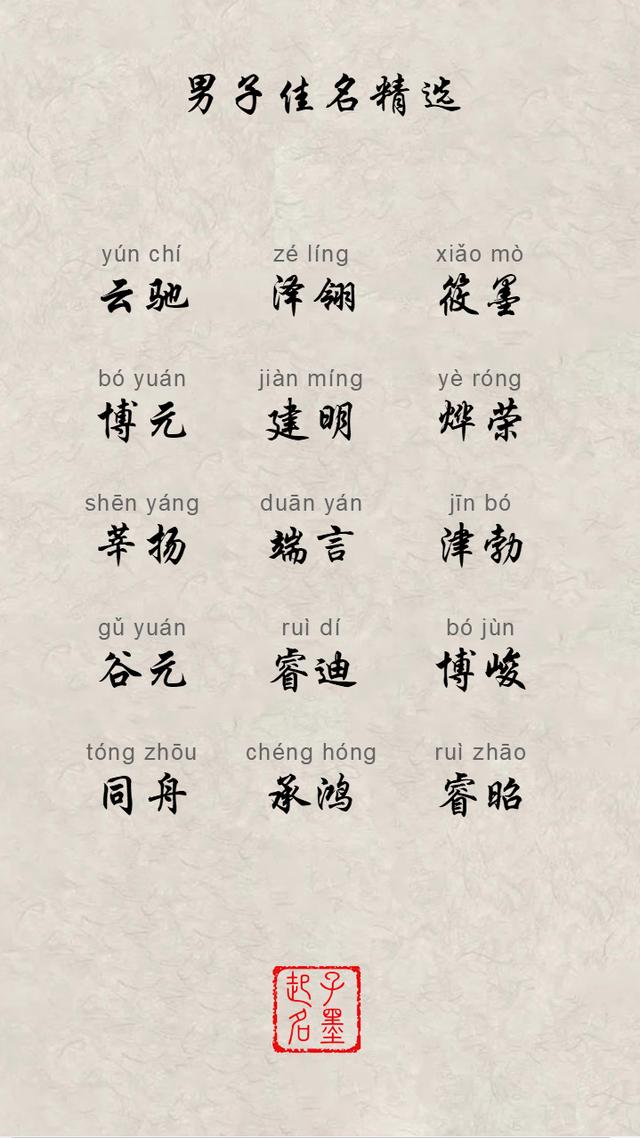 男子佳名精选
yún chí zé líng xiǎo mò
云驰 泽翎 筱墨
bó yuán jiàn míng yè róng
博元 建明 烨荣
shēn yáng duān yán jīn bó
莘扬 端言 津勃
gǔ yuán ruì dí bó jùn
谷元 睿迪 博峻
tóng zhōu chéng hóng ruì zhāo
同舟 承鸿 睿昭
子墨
起名